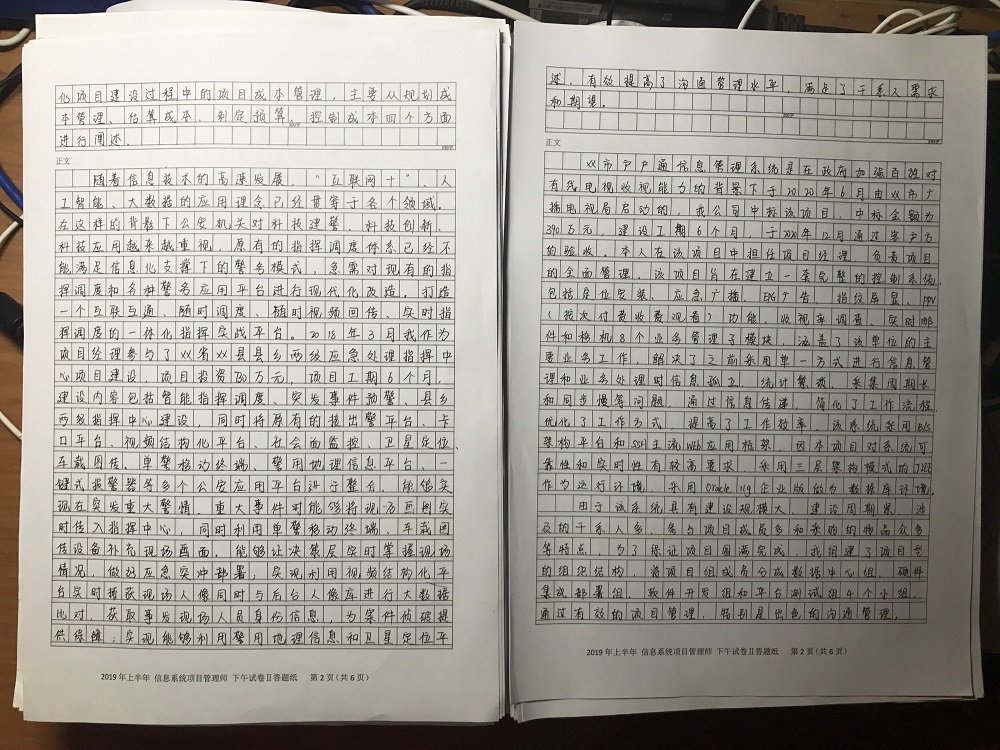 化项目建设过程中的项目成本管理，主要从规划成
本管理、估算成本、制定预算、控制成本四个方面
进行阐述。
正文
随着信息技术的高速发展，“互联网+”、人
工智能、大数据的应用理念已经贯穿于各个领域。
在这样的背景下公安机关对科技建警、科技创新、
科技应用越来越重视，原有的指挥调度体系已经不
能满足信息化支撑下的警务模式，急需对现有的指
挥调度和各种警务应用平台进行现代化改造，打造
一个互联互通、随时调度、随时视频回传、实时指
挥调度的一体化指挥实战平台。2018年3月我作为
项目经理参与了XX省XX县县乡两级应急处理指挥中
心项目建设，项目投资730万元，项目工期6个月，
建设内容包括智能指挥调度、突发事件预警、县乡
两级指挥中心建设，同时将原有的接出警平台、卡
口平台、视频结构化平台、社会面监控、卫星定位、
车载图传、单警移动终端、警用地理信息平台、一
键式报警器等多个公安应用平台进行整合，能够实
现在突发重大警情、重大事件时能够将现场画图实
时传入指挥中心，同时利用单警移动终端、车载图
传设备补充现场画面，能够让决策层实时掌握现场
情况，做好应急突冲部署；实现利用视频结构化平
台实时捕获现场人像同时与后台人像库进行大数据
比对，获取事发现场人员身份信息，为案件侦破提
供保障；实现能够利用警用地理信息和卫星定位平
2019年上半年 信息系统项目管理师 下午试卷Ⅱ答题纸 第2页（共6页）
述，有效提高了沟通管理水平，满足了干系人需求
和期望。
300字
正文
XX市户户通信息管理系统是在政府加强百姓对
有线电视收视能力的背景下于2020年6月由XX市广
播电视局启动的，我公司中标该项目，中标金额为
390万元，建设工期6个月，于2020年12月通过客户方
的验收。本人在该项目中担任项目经理，负责项目
的全面管理。该项目旨在建立一套完整的控制系统，
包括定位安装、应急广播、EPG广告、指纹屏显、PPV
（按次付费收费观看）功能、收视率调查、实时邮
件和移机8个业务管理子模块，涵盖了该单位的主
要业务工作，解决了之前采用单一方式进行信息管
理和业务处理时信息孤立、统计繁琐、采集周期长
和同步慢等问题，通过信息传递，简化了工作流程，
优化了工作方式，提高了工作效率。该系统采用B/S
架构平台和SSH主流Web应用框架，因本项目对系统可
靠性和实时性有较高要求，采用三层架构模式的J2EE
作为运行环境，采用Oracle 11g企业版做为数据库环境。
由于该系统具有建设规模大、建设周期紧、涉
及的干系人多、参与项目成员多和采购的物品众多
等特点，为了保证项目圆满完成，我组建了项目型
的组织结构，将项目组成员分成数据中心组、硬件
集成部署组、软件开发组和平台测试组4个小组，
通过有效的项目管理，特别是出色的沟通管理，
2019年上半年 信息系统项目管理师 下午试卷Ⅱ答题纸 第2页（共6页）